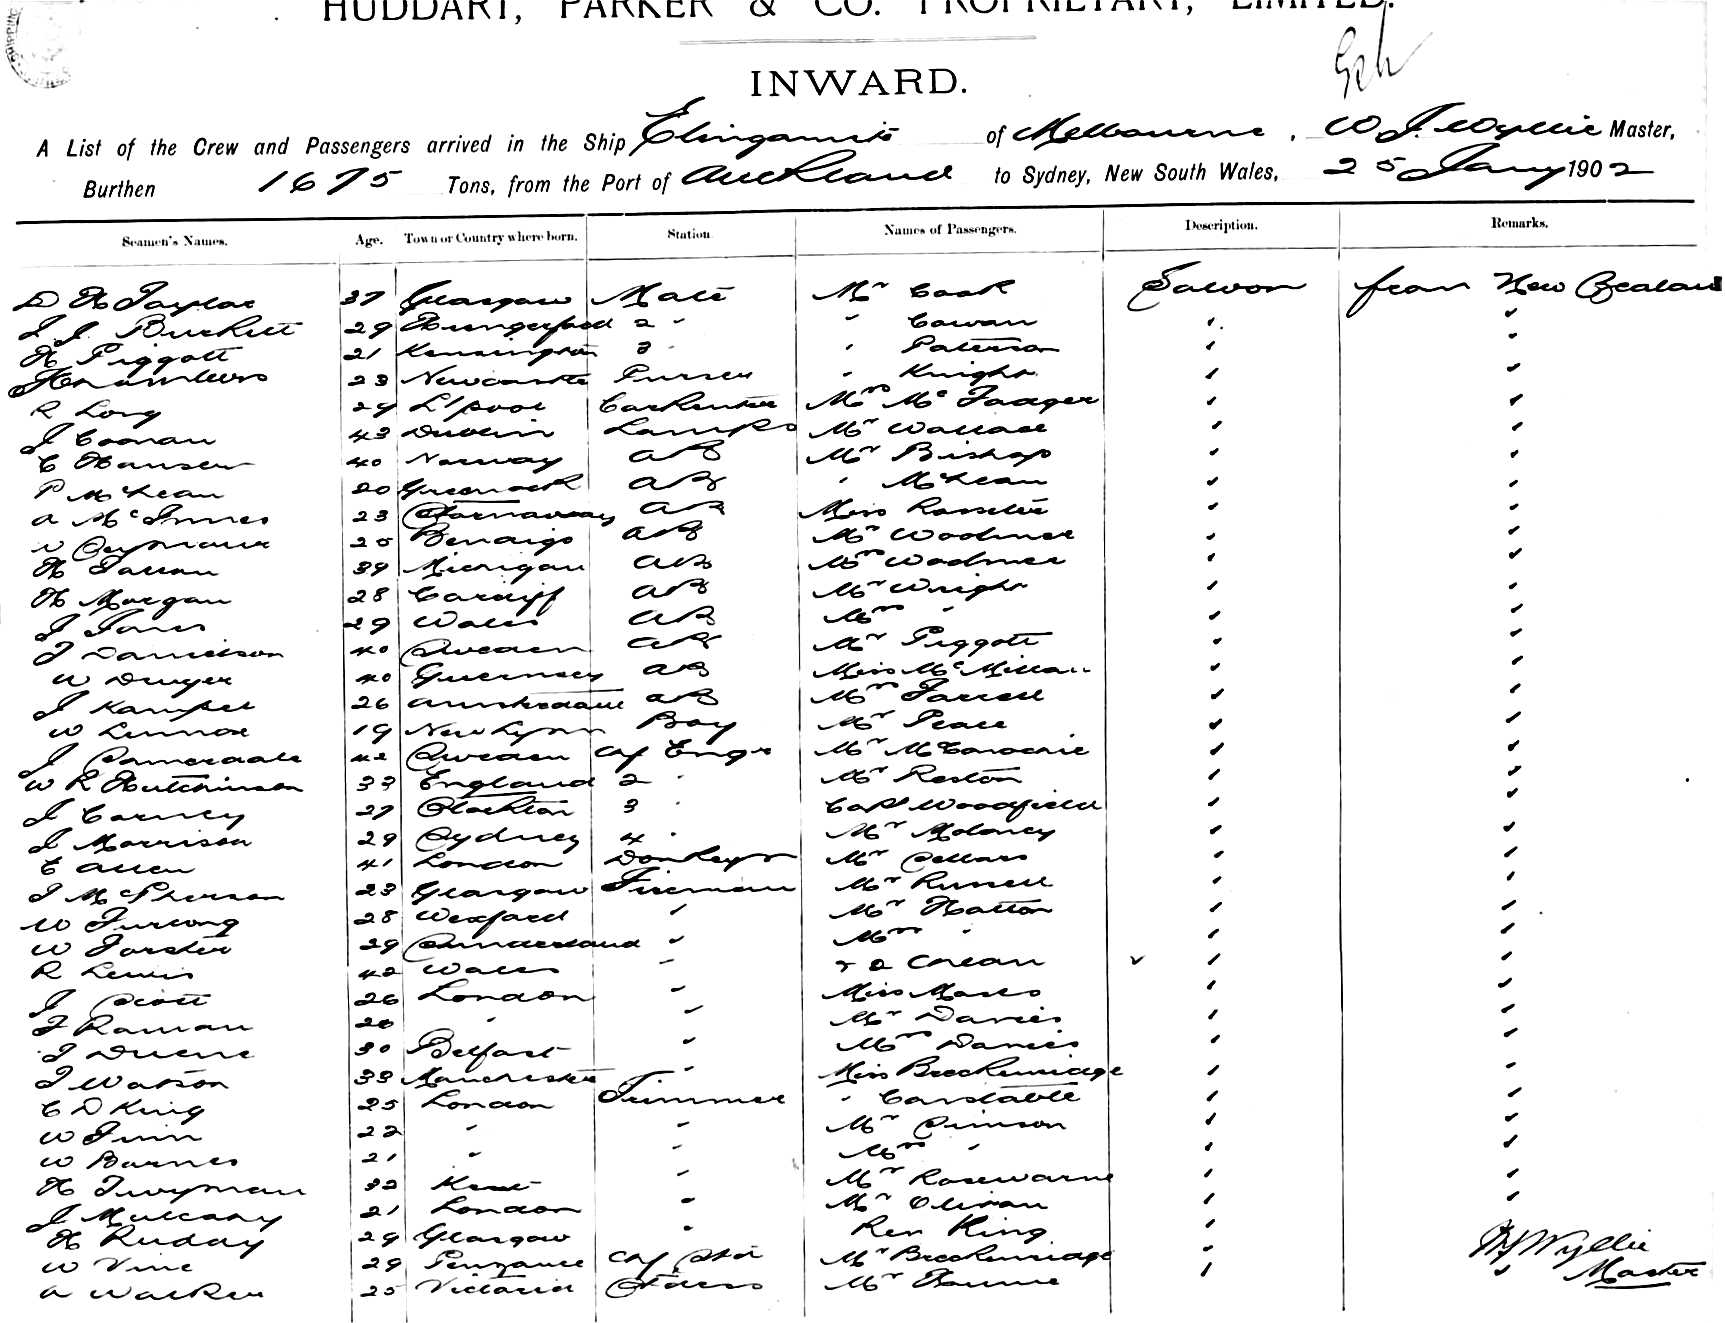 HUDDART, PARKER & CO. PROPRIETARY, LIMITED.
INWARD.
A List of the Crew and Passengers arrived in the Ship Elingamite of Melbourne, W J. Wyllie Master,
Burthen 1675 Tons, from the Port of Auckland to Sydney, New South Wales, 25 Jany 1902
Seamen's Names. Age. Town or Country where born. Station Names of Passengers. Description. Remarks.
D H Taylor 37 Glasgow Mate Mr Cook Saloon from New Zealand
J J. Burkett 29 Hungerford 2 " " Cowan " "
H Piggott 21 Kensington 3 " " Paterson " "
Chambers 23 Newcastle Purser " Knight " "
R Long 29 L'pool Carpenter Mrs Mc " "
J Coonan 43 Dublin Lamps Mr Wallace " "
C Hansen 40 Norway AB Mr Bishop " "
P McLean 20 Greenock AB " McLean " "
A McInnes 23 Stornaway AB Miss " "
W Seymour 25 Bendigo AB Mr Woolmer " "
H 39 Michigan AB Mrs Woolmer " "
H Morgan 28 Cardiff AB Mr Wright " "
J 29 Wales AB Mrs " " "
J Danielson 40 Sweden AB Mr Piggott " "
W Dwyer 40 Guernsey AB Miss McMillan " "
J Kamper 26 Amsterdam AB Mrs Farrell " "
W Lennox 19 New Lynn Boy Mr Peace " "
J 42 Sweden Chf Engr Mr " "
W R Hutchinson 33 England 2 " Mr Reston " "
J Carney 27 Stockton 3 " Capt Woodfield " "
J Morrison 29 Sydney 4 " Mr Moloney " "
E Allen 41 London Donkeyn Mr Sellars " "
J McPherson 23 Glasgow Fireman Mr Russell " "
W Furlong 28 Wexford " Mr Hatton " "
W Forster 29 Sunderland " Mrs " " "
R Lewis 42 Wales " " "
J Scott 26 London " Miss " "
J 26 " " Mr Davies " "
J 30 Belfast " Mrs Davies " "
J Watson 33 Manchester " Miss Breckenridge " "
C D King 25 London Trimmer " Constable " "
W 22 " " Mr Simson " "
W Barnes 21 " " Mrs " " "
H Twyman 32 Kent " Mr Rosewarne " "
J Mulcahy 21 London " Mr " "
H Rudday 29 Glasgow " Rev King " WJ Wyllie
W Vine 29 Penzance Chf Std Mr Breckenridge " " Master
A Walker 25 Victoria Mr "